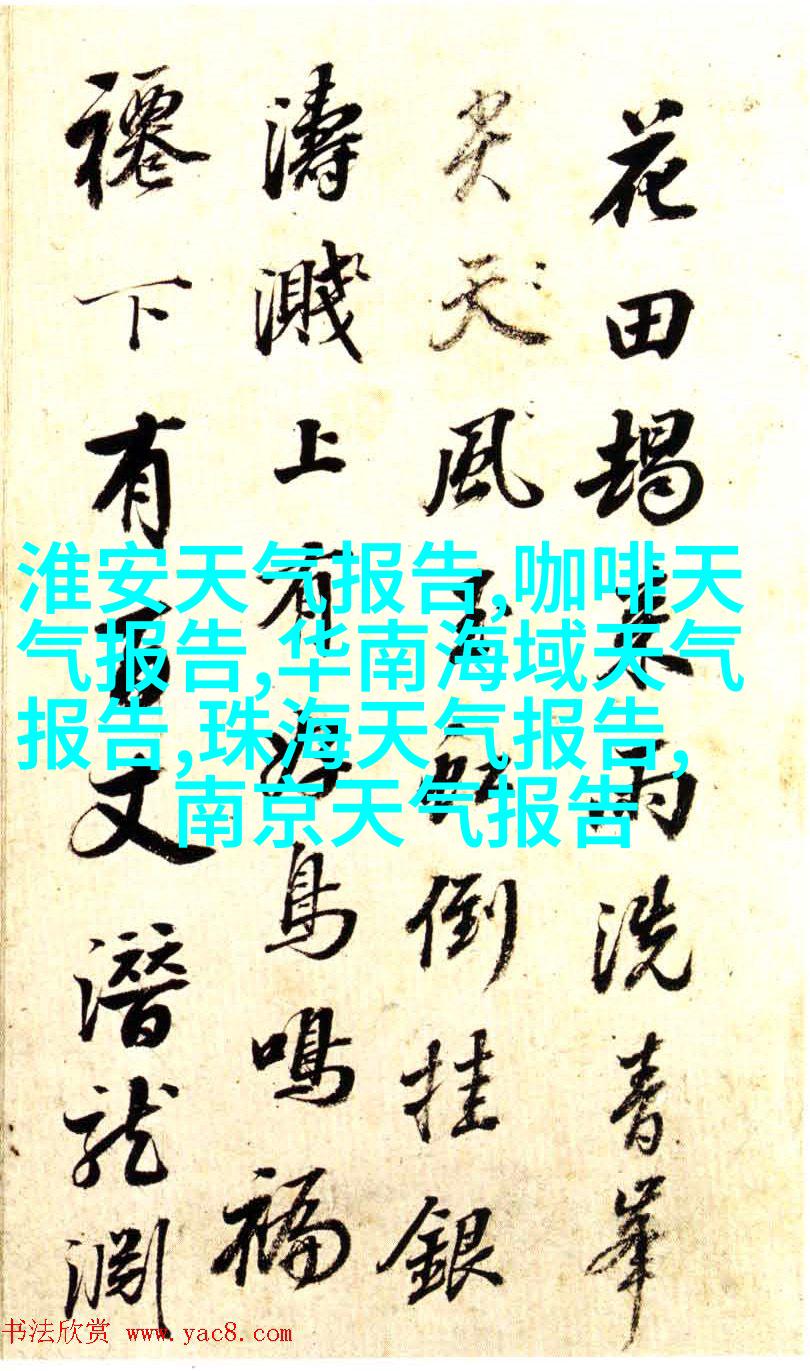 花田朅来雨洗青峯
尖天風倒挂銀
濤濺上有鳥鳴福
下有百丈潛龍淵
淮安天气报告,咖啡天
气报告,华南海域天气
报告,珠海天气报告,
南京天气报告
书法欣赏 www.yac8.com